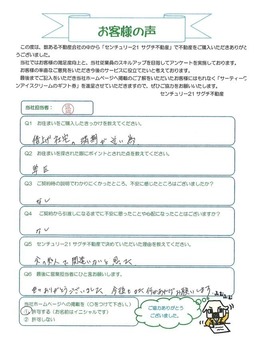 お客様の声
この度は、数ある不動産会社の中から「センチュリー21 サグチ不動産」で不動産をご購入いただきありがとうございました。
当社ではお客様の満足度向上と、当社従業員のスキルアップを目指してアンケートを実施しております。
お客様の率直なご意見をいただき今後のサービスに役立てたいと考えております。
最後までご記入いただき当社ホームページへの掲載にご了解いただいたお客様にはもれなく「サーティーワンアイスクリームのギフト券」を進呈させていただきますので、ぜひご協力をお願いいたします。
センチュリー21 サグチ不動産
当社担当者：
Q1 お住まいをご購入したきっかけを教えてください。
借上げ社宅の期限が近い為
Q2 お住まいを探された際にポイントとされた点を教えてください。
Q3 ご契約時の説明でわかりにくかったところ、不安に感じたところはございましたか？
なし
Q4 ご契約から引き渡しになるまでに不安に思ったことや心配になったことはございますか？
なし
Q5 センチュリー21サグチ不動産で決めていただいた理由を教えてください。
Q6 最後に営業担当者にひと言お願いします。
ありがとうございました 今後とも お願いします
当社ホームページへの掲載を（○をつけて下さい）
1 許可する（お名前はイニシャルです）
2 許可しない
ご協力ありがとう
ございました。